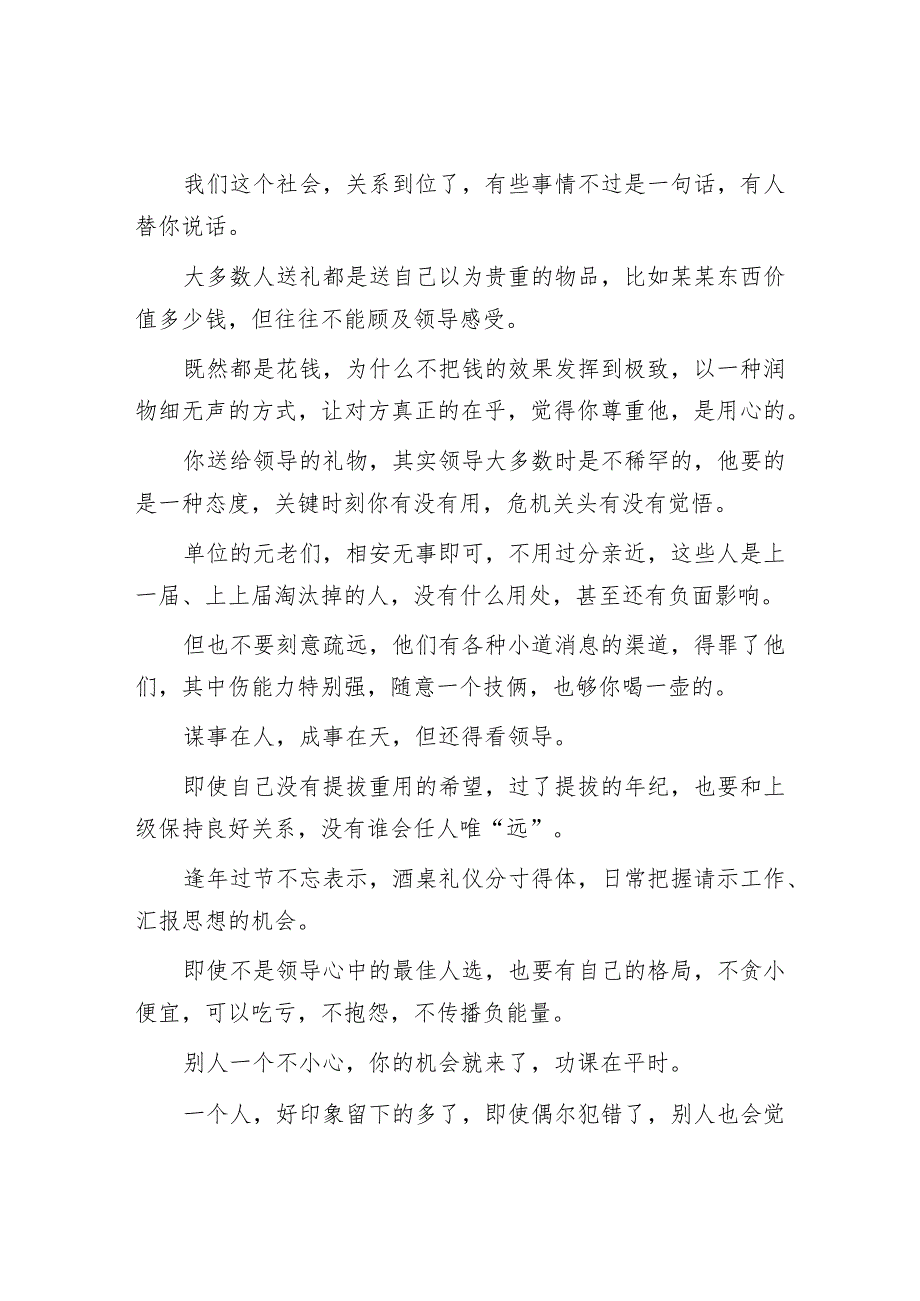 我们这个社会，关系到位了，有些事情不过是一句话，有人
替你说话。
大多数人送礼都是送自己以为贵重的物品，比如某某东西价
值多少钱，但往往不能顾及领导感受。
既然都是花钱，为什么不把钱的效果发挥到极致，以一种润
物细无声的方式，让对方真正的在乎，觉得你尊重他，是用心的。
你送给领导的礼物，其实领导大多数时是不稀罕的，他要的
是一种态度，关键时刻你有没有用，危机关头有没有觉悟。
单位的元老们，相安无事即可，不用过分亲近，这些人是上
一届、上上届淘汰掉的人，没有什么用处，甚至还有负面影响。
但也不要刻意疏远，他们有各种小道消息的渠道，得罪了他
们，其中伤能力特别强，随意一个技俩，也够你喝一壶的。
谋事在人，成事在天，但还得看领导。
即使自己没有提拔重用的希望，过了提拔的年纪，也要和上
级保持良好关系，没有谁会任人唯“远”。
逢年过节不忘表示，酒桌礼仪分寸得体，日常把握请示工作、
汇报思想的机会。
即使不是领导心中的最佳人选，也要有自己的格局，不贪小
便宜，可以吃亏，不抱怨，不传播负能量。
别人一个不小心，你的机会就来了，功课在平时。
一个人，好印象留下的多了，即使偶尔犯错了，别人也会觉